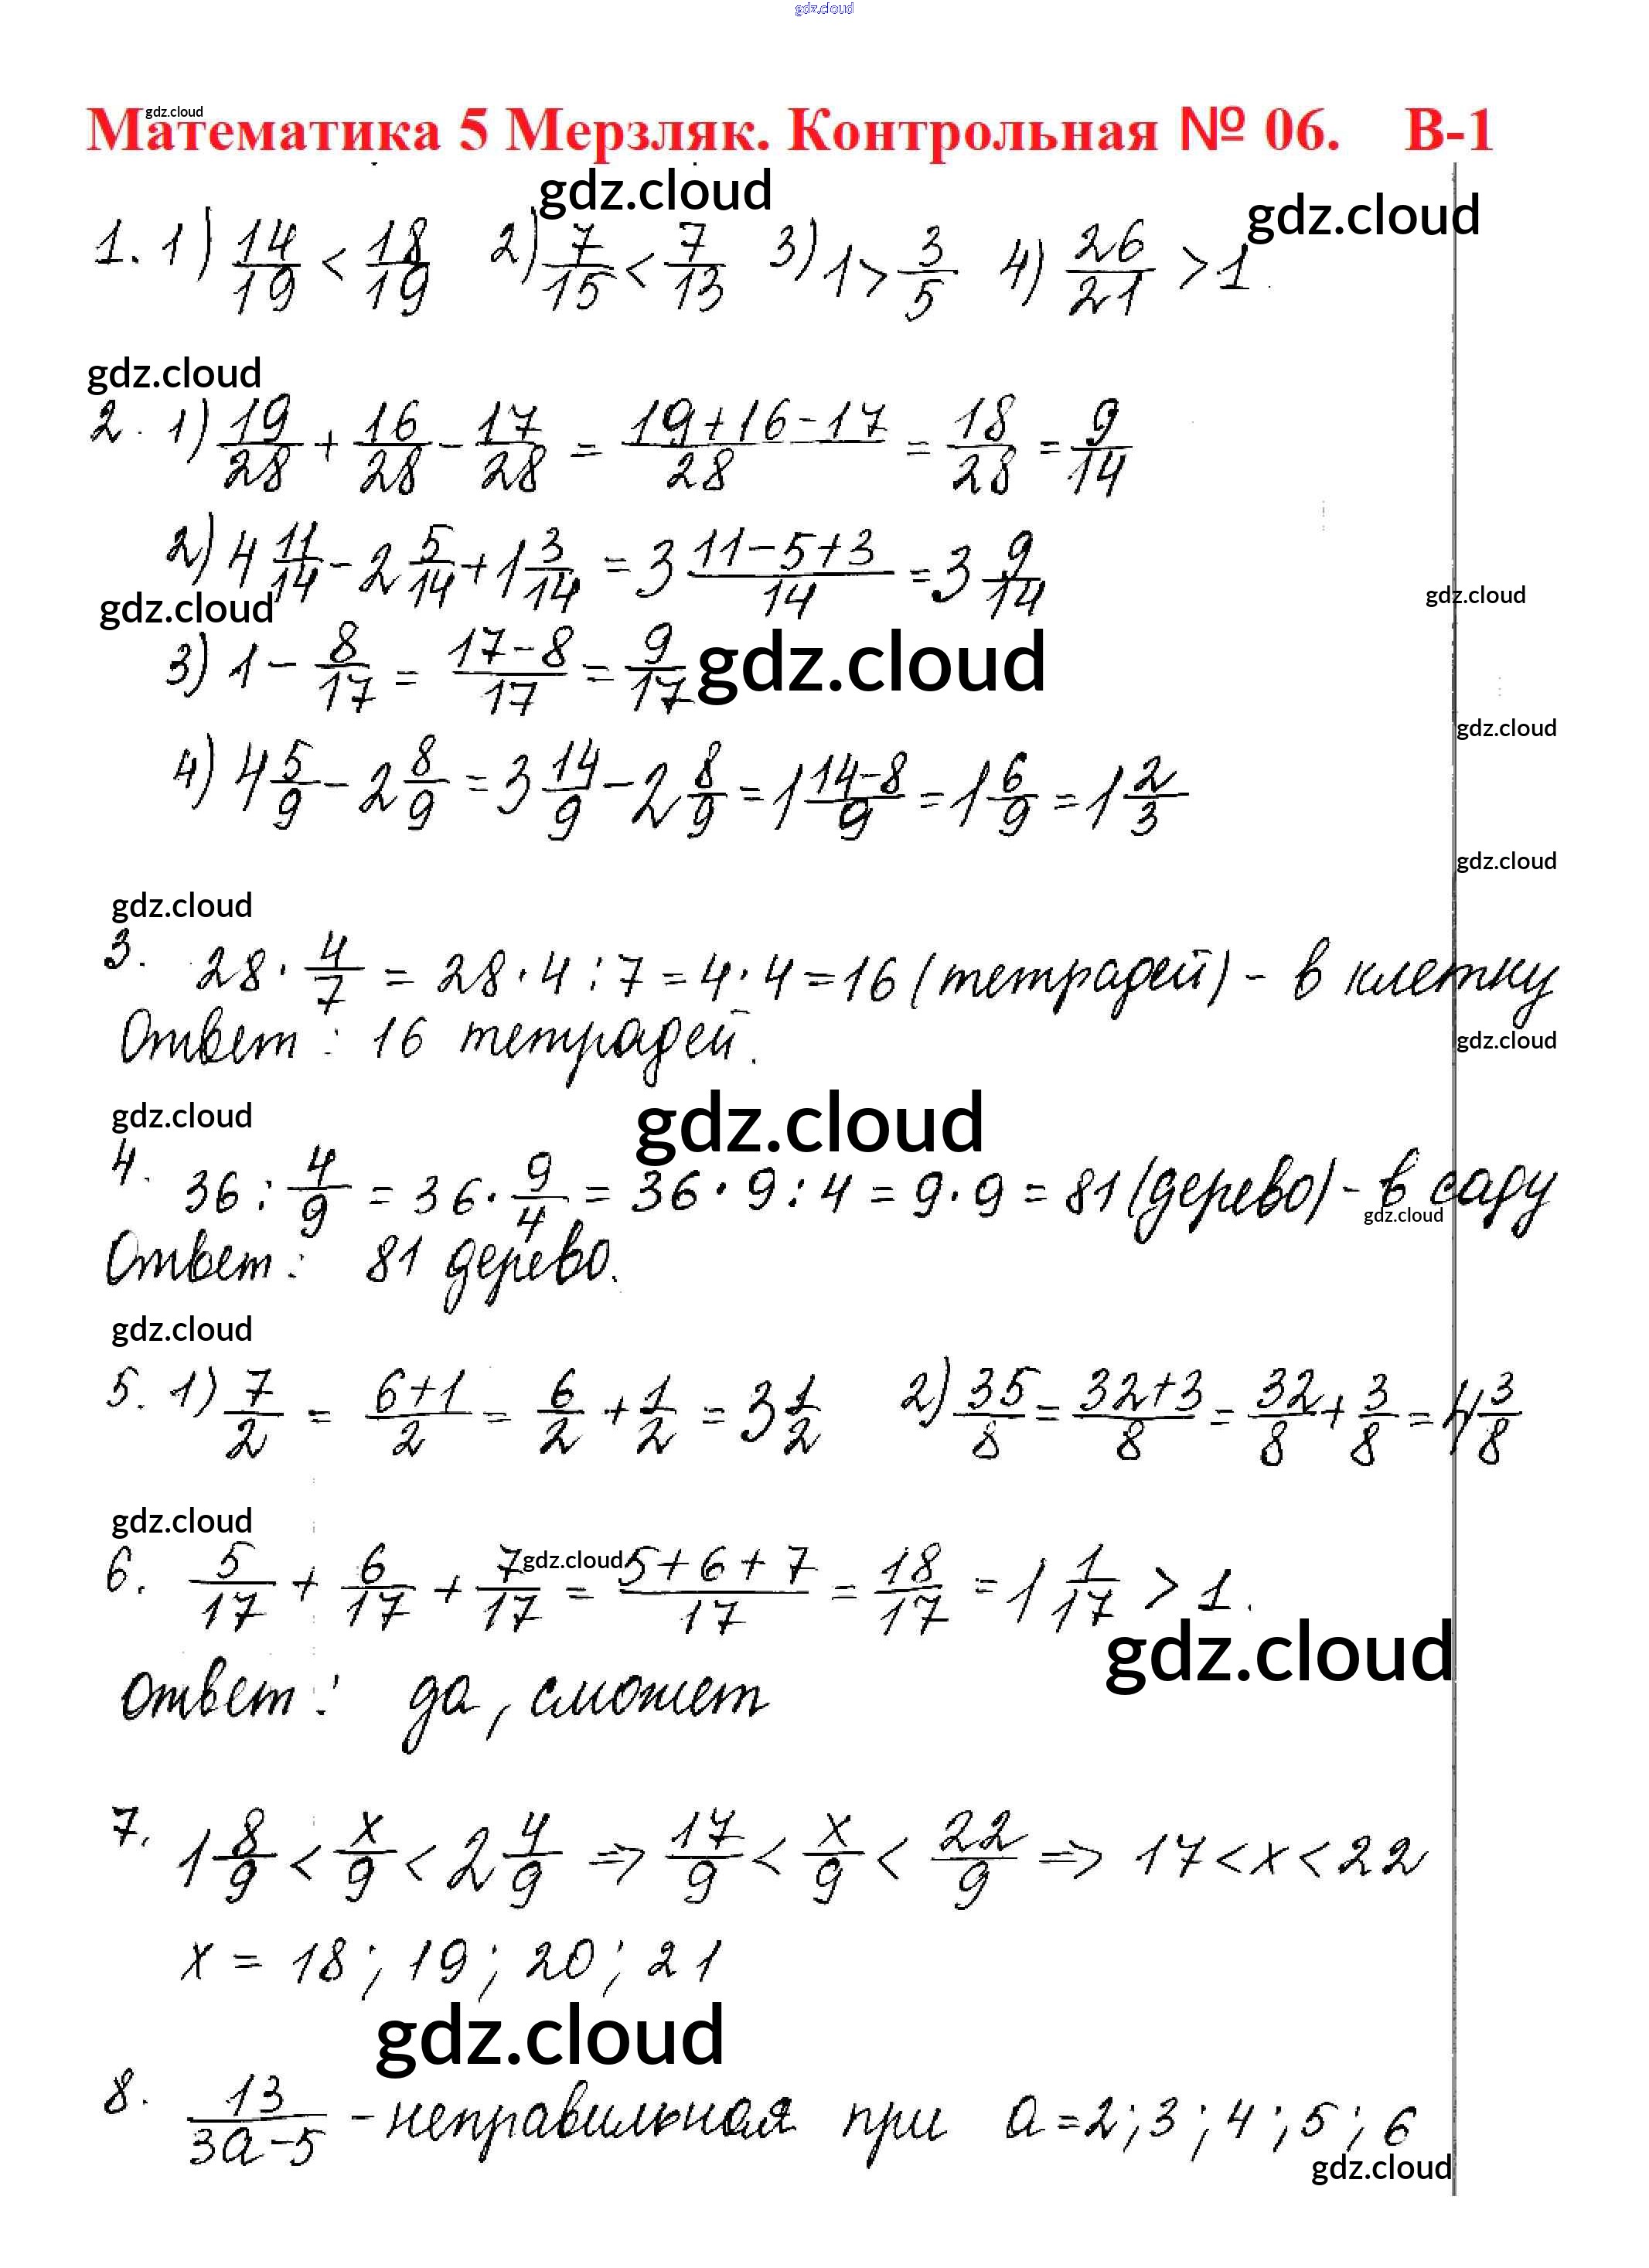 gdz.cloud
Математика 5 Мерзляк. Контрольная № 06. В-1
gdz.cloud
gdz.cloud
gdz.cloud
1. 1) 14/19 < 18/19 2) 7/15 < 7/13 3) 1 > 3/5 4) 26/21 > 1
gdz.cloud
2. 1) 19/28 + 16/28 - 17/28 = (19+16-17)/28 = 18/28 = 9/14
2) 4 11/14 - 2 5/14 + 1 3/14 = 3 (11-5+3)/14 = 3 9/14
gdz.cloud
gdz.cloud
3) 1 - 8/17 = (17-8)/17 = 9/17
gdz.cloud
gdz.cloud
4) 4 5/9 - 2 8/9 = 3 14/9 - 2 8/9 = 1 (14-8)/9 = 1 6/9 = 1 2/3
gdz.cloud
gdz.cloud
3. 28 · 4/7 = 28 · 4 : 7 = 4 · 4 = 16 (тетрадей) - в клетку
Ответ: 16 тетрадей.
gdz.cloud
gdz.cloud
gdz.cloud
4. 36 : 4/9 = 36 · 9/4 = 36 · 9 : 4 = 9 · 9 = 81 (дерево) - в саду
gdz.cloud
Ответ: 81 дерево.
gdz.cloud
5. 1) 7/2 = (6+1)/2 = 6/2 + 1/2 = 3 1/2 2) 35/8 = (32+3)/8 = 32/8 + 3/8 = 4 3/8
gdz.cloud
gdz.cloud
6. 5/17 + 6/17 + 7/17 = (5+6+7)/17 = 18/17 = 1 1/17 > 1.
gdz.cloud
Ответ: да, сможет
7. 1 8/9 < x/9 < 2 4/9 => 17/9 < x/9 < 22/9 => 17 < x < 22
x = 18; 19; 20; 21
gdz.cloud
8. 13/(3a-5) - неправильная при a = 2; 3; 4; 5; 6
gdz.cloud